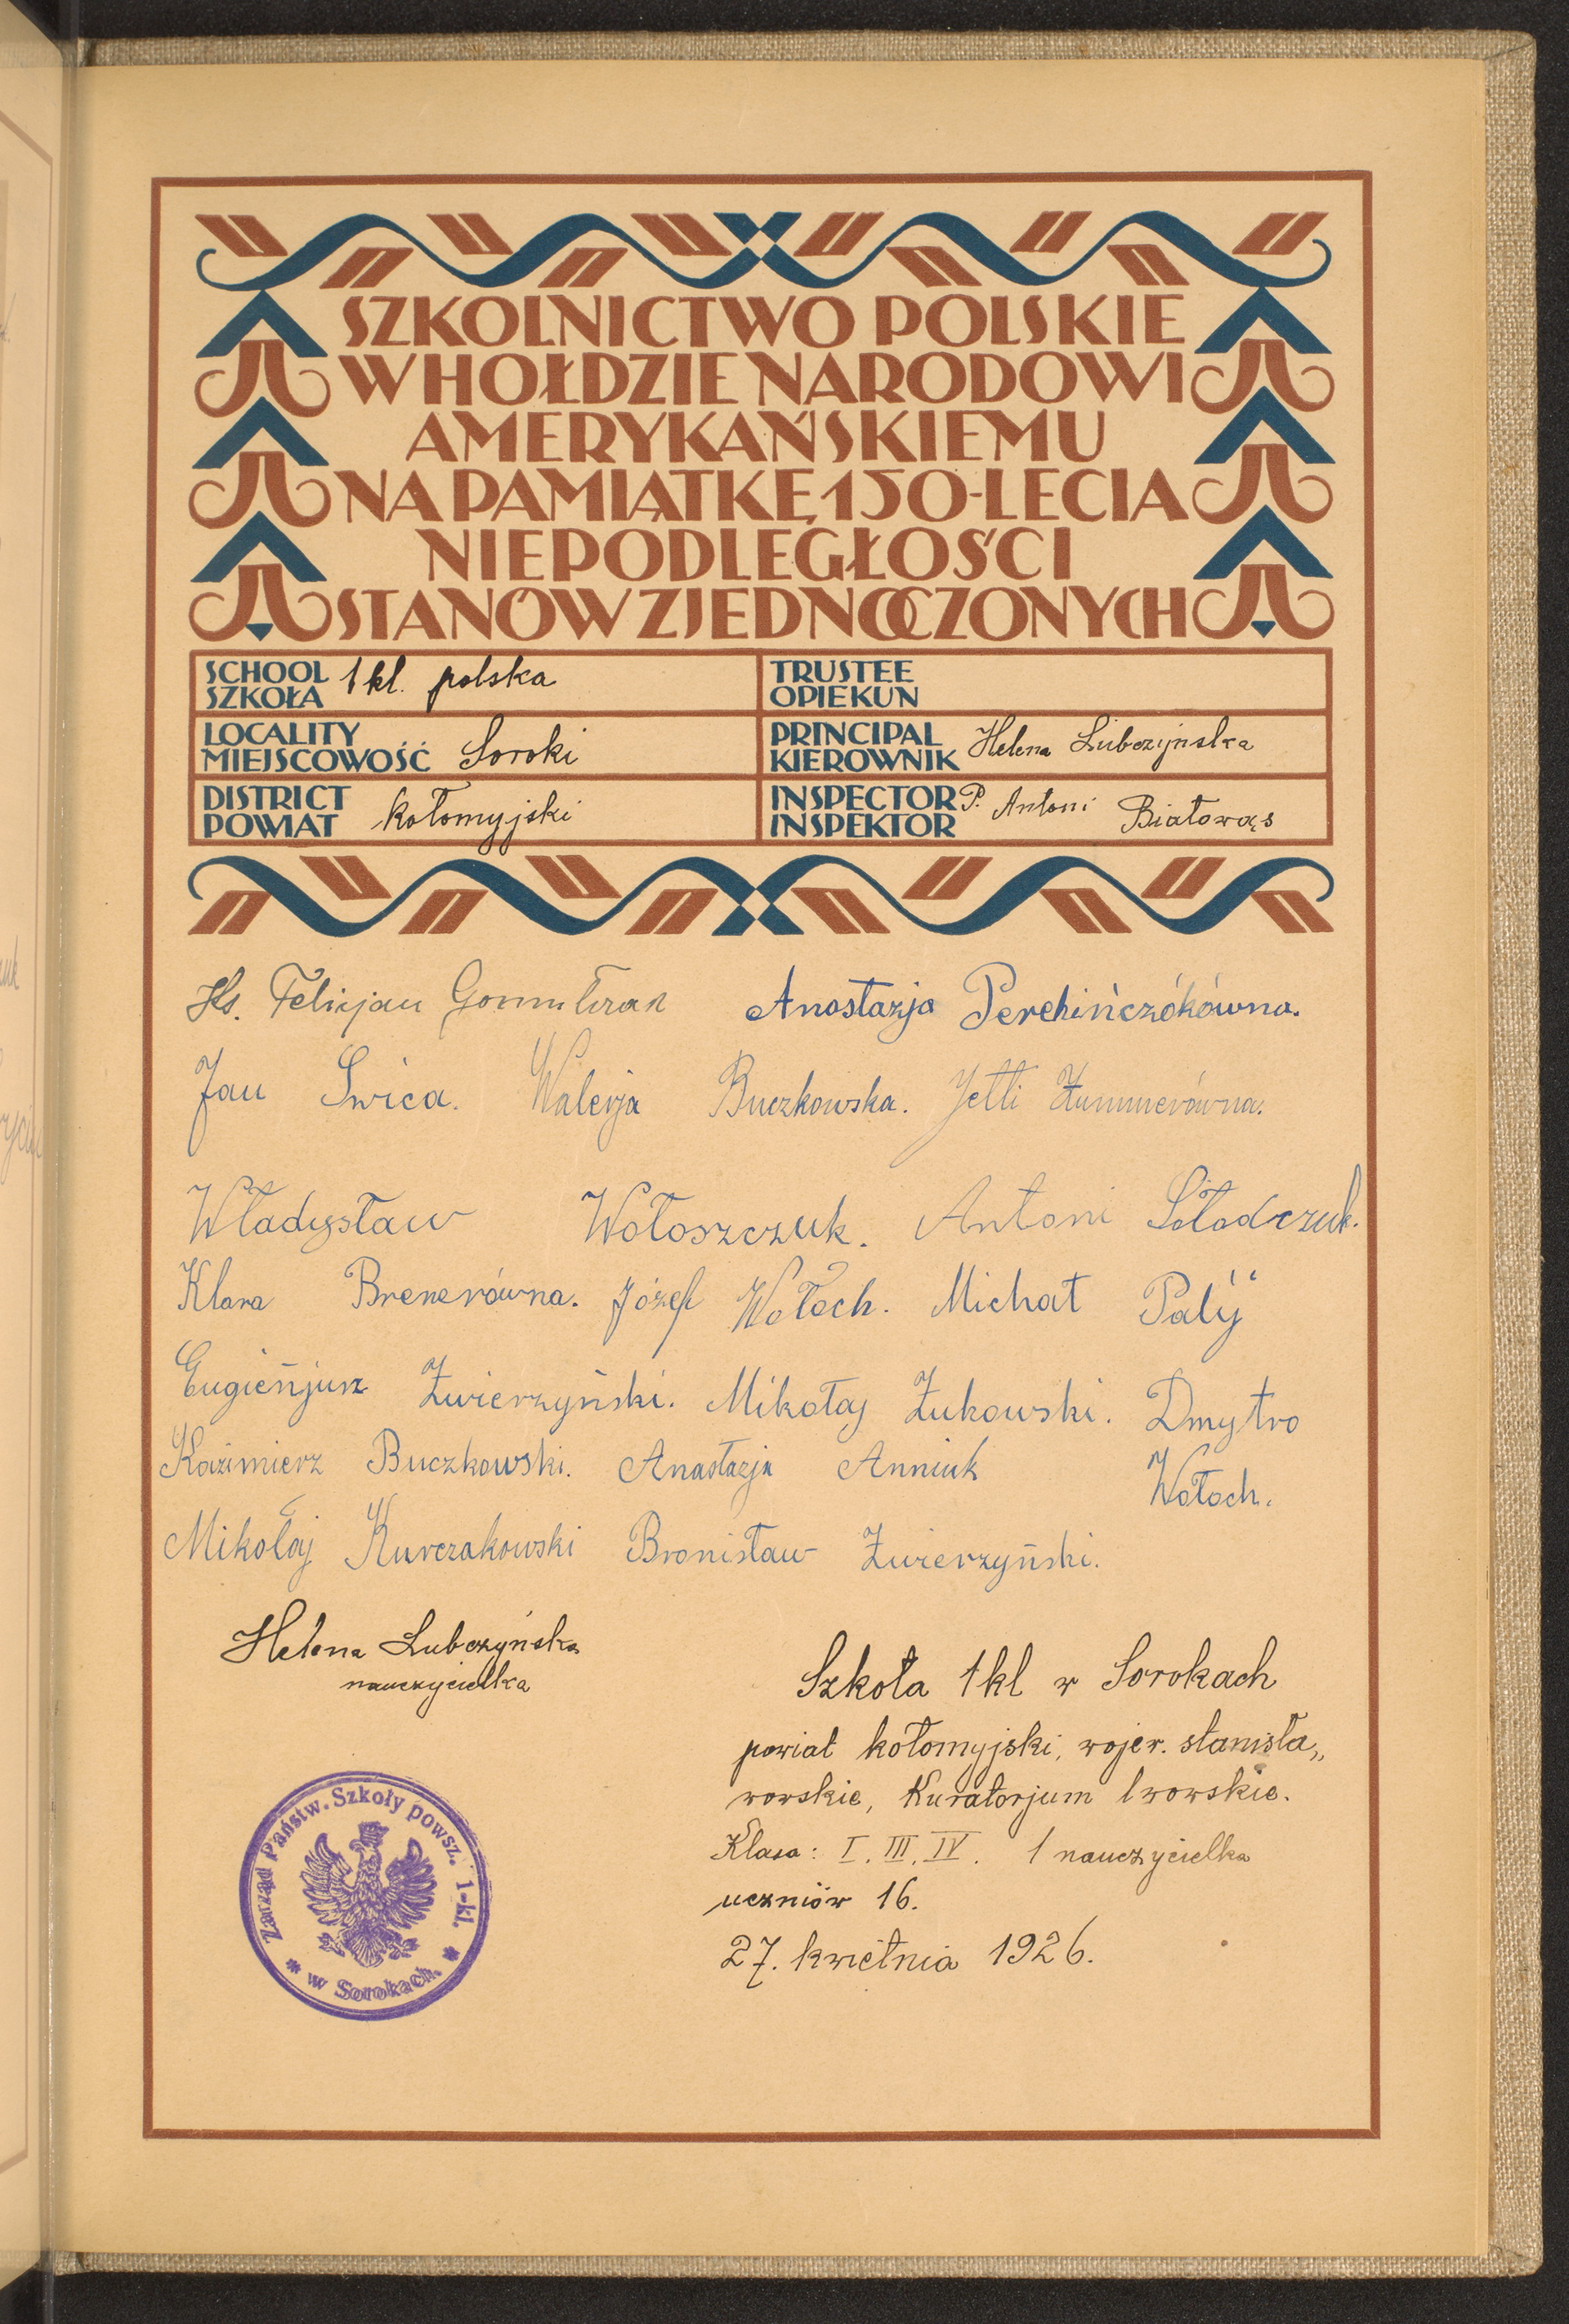 SZKOLNICTWO POLSKIE
W HOŁDZIE NARODOWI
AMERYKAŃSKIEMU
NA PAMIĄTKĘ 150-LECIA
NIEPODLEGŁOŚCI
STANÓW ZJEDNOCZONYCH
SCHOOL
SZKOŁA 1 kl. polska
TRUSTEE
OPIEKUN
LOCALITY
MIEJSCOWOŚĆ Soroki
PRINCIPAL
KIEROWNIK Helena Lubczyńska
DISTRICT
POWIAT kołomyjski
INSPECTOR
INSPEKTOR P. Antoni Białowąs
Ks. Felicjan Anostazja Perehińczókówna.
Jan Swica. Walerja Buczkowska. Jetti Zummerówna.
Władysław Wołoszczuk. Antoni
Klara Brenerówna. Józef Wołoch. Michał Palij
Eugieńjusz Zwierzyński. Mikołaj Żukowski. Dmytro
Kazimierz Buczkowski. Anastazja Anniuk Wołoch.
Mikołaj Kurczakowski Bronisław Zwierzyński.
Helena Lubczyńska
nauczycielka
Szkoła 1 kl w Sorokach
powiat kołomyjski, wojew. stanisła„
wowskie, Kuratorjum lwowskie.
Klasa: I. III. IV. 1 nauczycielka
uczniów 16.
27. kwietnia 1926.
Zarząd Państw. Szkoły powsz. 1-kl.
* w Sorokach. *